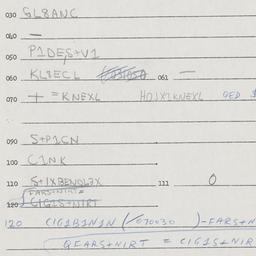 030 GL8ANC
040 —
050 P1DE,S+V1
060 KL8ECL 061 —
070 + = KNEXL HOJX1KNEXL QED $
090 S+P1CN
100 C1NK
110 S+1XBENOL3X 111 0
FARS+NIRT=
120 C1G1S+NIRT
120 C1G1B1N1N (/070030 )-FARS+N
QFARS+NIRT = C1G1S+NIR